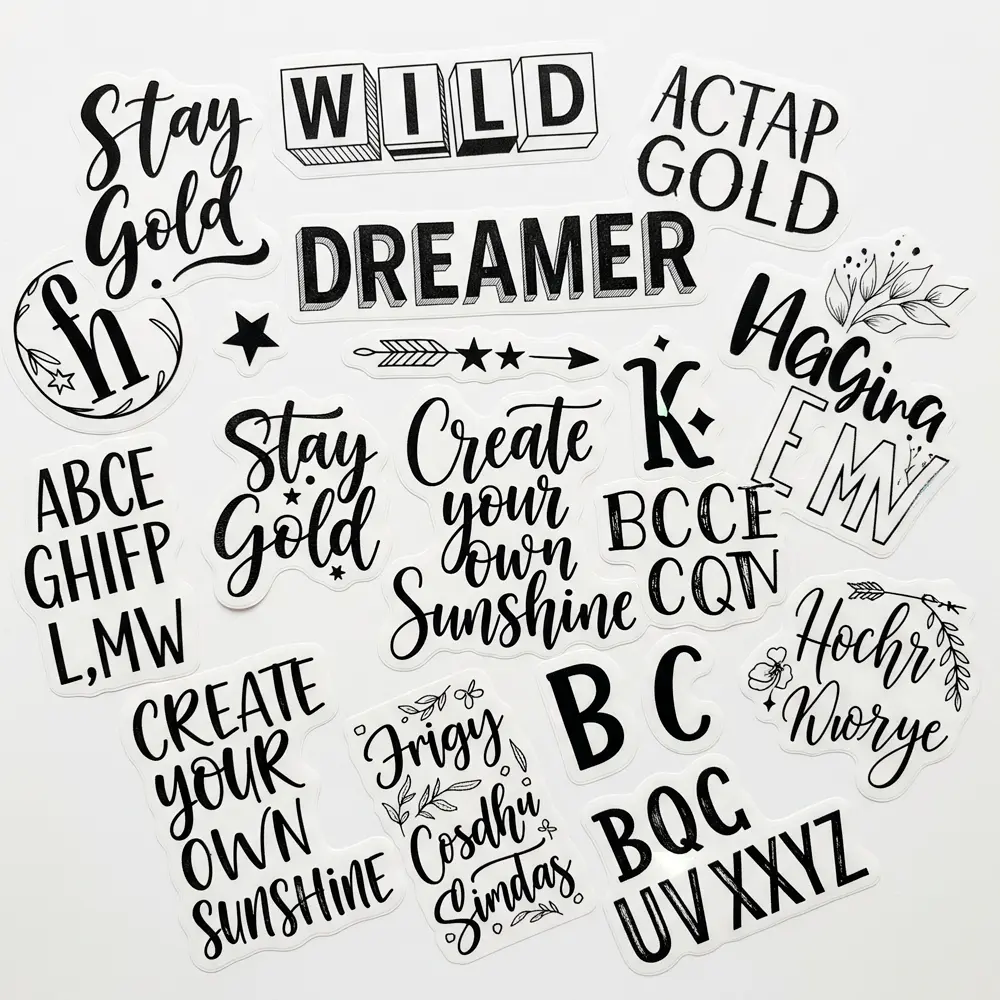 Stay
Gold
WILD
ACTAP
GOLD
DREAMER
h
HaGina
EMV
k
ABCE
GHIFP
L,MW
Stay
Gold
Create
your
own
Sunshine
BCCE
CQN
Hochr
Nuorye
CREATE
YOUR
OWN
SUNSHINE
Frigy
Cosdhu
Simdas
B C
BQG
UVXXYZ